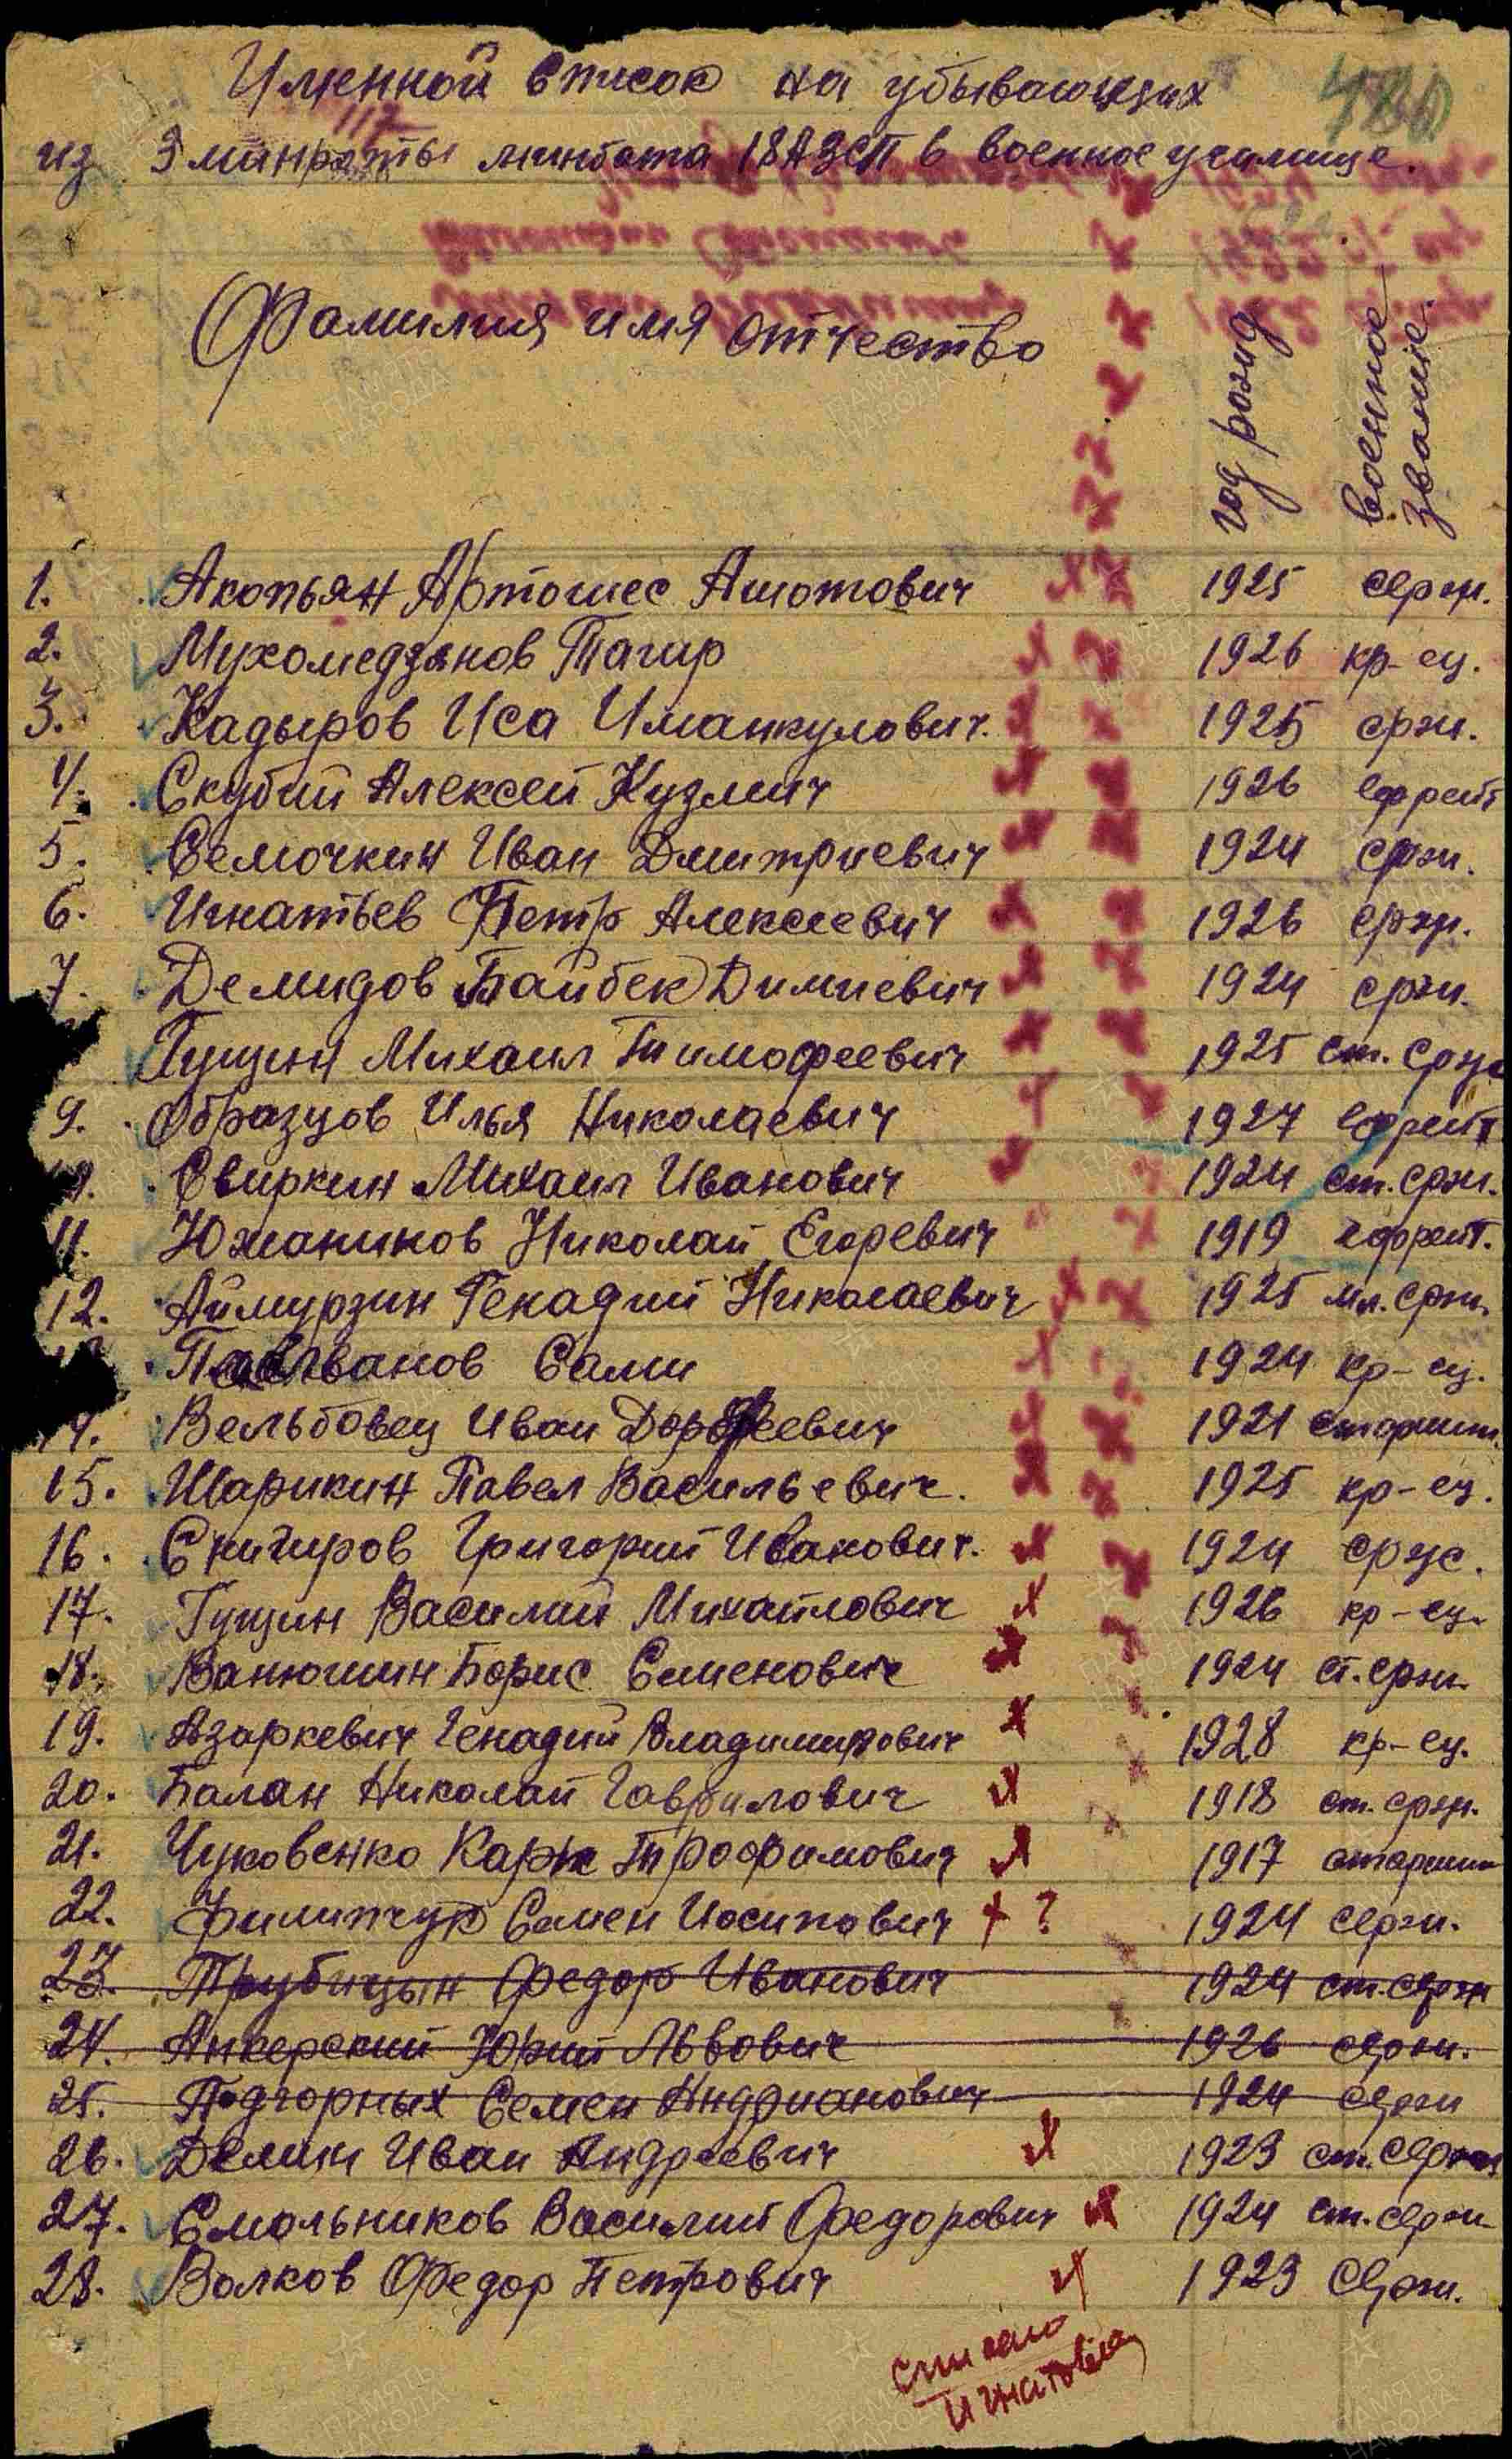 Именной список на убывающих
из 3 минроты минбата 18АЗСП в военное училище.
480
Фамилия имя отчество год рожд военное звание.
1. Акопьян Артошес Ашотович 1925 серж.
2. Мухомедзянов Тагир 1926 кр-ец.
3. Кадыров Иса Иманкулович. 1925 срж.
4. Скубий Алексей Кузмич 1926 ефрейт
5. Семочкин Иван Дмитриевич 1924 срж.
6. Игнатьев Петр Алексеевич 1926 срж.
7. Демидов Байбек Димиевич 1924 срж.
Гущин Михаил Тимофеевич 1925 ст. срж
9. Образцов Илья Николаевич 1927 ефрейт
Свиркин Михаил Иванович 1924 ст. срж.
11. Южанинов Николай Егоревич 1919 ефрейт.
12. Аймурзин Генадий Николаевич 1925 мл. срж.
Сами 1924 кр-ец.
14. Вельбовец Иван Дорофеевич 1921 старшин.
15. Шарикин Павел Васильевич. 1925 кр-ец.
16. Снигиров Григорий Иванович. 1924 срж.
17. Гущин Василий Михайлович 1926 кр-ец.
18. Ванюшин Борис Семенович 1924 ст. срж.
19. Азаркевич Генадий Владимирович 1928 кр-ец.
20. Балан Николай Гаврилович 1918 ст. срж.
21. Чуковенко Карп Трофимович 1917 старшин
22. Филипчук Семен Иосипович + ? 1924 серж.
23. Трубицын Федор Иванович 1924 ст. серж
24. Анкерский Юрий Львович 1926 серж.
25. Подгорных Семен Андрианович 1924 серж
26. Демин Иван Андреевич 1923 ст. серж
27. Смольников Василий Федорович 1924 ст. серж.
28. Волков Федор Петрович 1923 Серж.